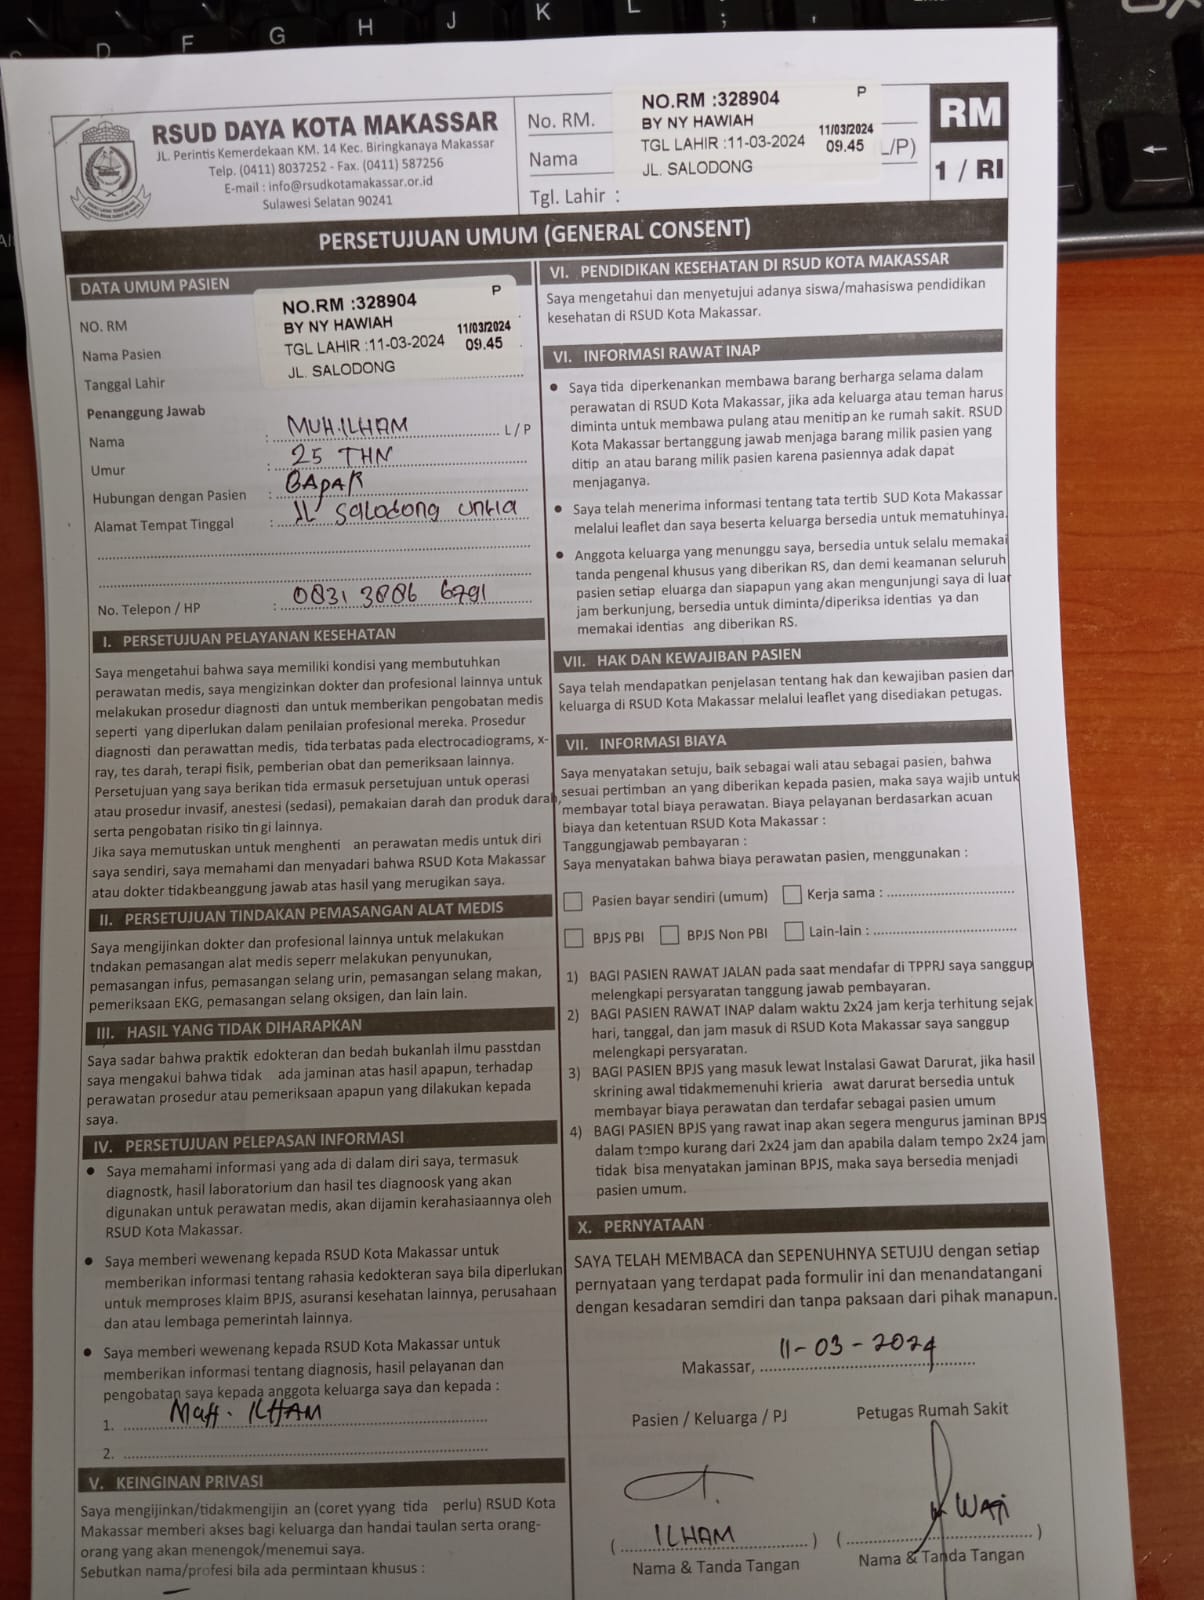 RSUD DAYA KOTA MAKASSAR
JL. Perintis Kemerdekaan KM. 14 Kec. Biringkanaya Makassar
Telp. (0411) 8037252 - Fax. (0411) 587256
E-mail : info@rsudkotamakassar.or.id
Sulawesi Selatan 90241
No. RM.
Nama
L/P)
Tgl. Lahir :
NO.RM :328904 P
BY NY HAWIAH
TGL LAHIR :11-03-2024 11/03/2024 09.45
JL. SALODONG
RM
1 / RI
PERSETUJUAN UMUM (GENERAL CONSENT)
DATA UMUM PASIEN
NO. RM
Nama Pasien
Tanggal Lahir
NO.RM :328904 P
BY NY HAWIAH
TGL LAHIR :11-03-2024 11/03/2024 09.45
JL. SALODONG
Penanggung Jawab
Nama : MUH.ILHAM L / P
Umur : 25 THN
Hubungan dengan Pasien : BApAK
Alamat Tempat Tinggal : Jl Salodong
No. Telepon / HP : 0831 3886 6791
I. PERSETUJUAN PELAYANAN KESEHATAN
Saya mengetahui bahwa saya memiliki kondisi yang membutuhkan
perawatan medis, saya mengizinkan dokter dan profesional lainnya untuk
melakukan prosedur diagnosti dan untuk memberikan pengobatan medis
seperti yang diperlukan dalam penilaian profesional mereka. Prosedur
diagnosti dan perawattan medis, tida terbatas pada electrocadiograms, x-
ray, tes darah, terapi fisik, pemberian obat dan pemeriksaan lainnya.
Persetujuan yang saya berikan tida ermasuk persetujuan untuk operasi
atau prosedur invasif, anestesi (sedasi), pemakaian darah dan produk darah,
serta pengobatan risiko tin gi lainnya.
Jika saya memutuskan untuk menghenti an perawatan medis untuk diri
saya sendiri, saya memahami dan menyadari bahwa RSUD Kota Makassar
atau dokter tidakbeanggung jawab atas hasil yang merugikan saya.
II. PERSETUJUAN TINDAKAN PEMASANGAN ALAT MEDIS
Saya mengijinkan dokter dan profesional lainnya untuk melakukan
tndakan pemasangan alat medis seperr melakukan penyunukan,
pemasangan infus, pemasangan selang urin, pemasangan selang makan,
pemeriksaan EKG, pemasangan selang oksigen, dan lain lain.
III. HASIL YANG TIDAK DIHARAPKAN
Saya sadar bahwa praktik edokteran dan bedah bukanlah ilmu passtdan
saya mengakui bahwa tidak ada jaminan atas hasil apapun, terhadap
perawatan prosedur atau pemeriksaan apapun yang dilakukan kepada
saya.
IV. PERSETUJUAN PELEPASAN INFORMASI
• Saya memahami informasi yang ada di dalam diri saya, termasuk
diagnostk, hasil laboratorium dan hasil tes diagnoosk yang akan
digunakan untuk perawatan medis, akan dijamin kerahasiaannya oleh
RSUD Kota Makassar.
• Saya memberi wewenang kepada RSUD Kota Makassar untuk
memberikan informasi tentang rahasia kedokteran saya bila diperlukan
untuk memproses klaim BPJS, asuransi kesehatan lainnya, perusahaan
dan atau lembaga pemerintah lainnya.
• Saya memberi wewenang kepada RSUD Kota Makassar untuk
memberikan informasi tentang diagnosis, hasil pelayanan dan
pengobatan saya kepada anggota keluarga saya dan kepada :
1. MuH. ILHAM
2.
V. KEINGINAN PRIVASI
Saya mengijinkan/tidakmengijin an (coret yyang tida perlu) RSUD Kota
Makassar memberi akses bagi keluarga dan handai taulan serta orang-
orang yang akan menengok/menemui saya.
Sebutkan nama/profesi bila ada permintaan khusus :
VI. PENDIDIKAN KESEHATAN DI RSUD KOTA MAKASSAR
Saya mengetahui dan menyetujui adanya siswa/mahasiswa pendidikan
kesehatan di RSUD Kota Makassar.
VI. INFORMASI RAWAT INAP
• Saya tida diperkenankan membawa barang berharga selama dalam
perawatan di RSUD Kota Makassar, jika ada keluarga atau teman harus
diminta untuk membawa pulang atau menitip an ke rumah sakit. RSUD
Kota Makassar bertanggung jawab menjaga barang milik pasien yang
ditip an atau barang milik pasien karena pasiennya adak dapat
menjaganya.
• Saya telah menerima informasi tentang tata tertib SUD Kota Makassar
melalui leaflet dan saya beserta keluarga bersedia untuk mematuhinya.
• Anggota keluarga yang menunggu saya, bersedia untuk selalu memakai
tanda pengenal khusus yang diberikan RS, dan demi keamanan seluruh
pasien setiap eluarga dan siapapun yang akan mengunjungi saya di luar
jam berkunjung, bersedia untuk diminta/diperiksa identias ya dan
memakai identias ang diberikan RS.
VII. HAK DAN KEWAJIBAN PASIEN
Saya telah mendapatkan penjelasan tentang hak dan kewajiban pasien dan
keluarga di RSUD Kota Makassar melalui leaflet yang disediakan petugas.
VII. INFORMASI BIAYA
Saya menyatakan setuju, baik sebagai wali atau sebagai pasien, bahwa
sesuai pertimban an yang diberikan kepada pasien, maka saya wajib untuk
membayar total biaya perawatan. Biaya pelayanan berdasarkan acuan
biaya dan ketentuan RSUD Kota Makassar :
Tanggungjawab pembayaran :
Saya menyatakan bahwa biaya perawatan pasien, menggunakan :
Pasien bayar sendiri (umum) Kerja sama :
BPJS PBI BPJS Non PBI Lain-lain :
1) BAGI PASIEN RAWAT JALAN pada saat mendafar di TPPRJ saya sanggup
melengkapi persyaratan tanggung jawab pembayaran.
2) BAGI PASIEN RAWAT INAP dalam waktu 2x24 jam kerja terhitung sejak
hari, tanggal, dan jam masuk di RSUD Kota Makassar saya sanggup
melengkapi persyaratan.
3) BAGI PASIEN BPJS yang masuk lewat Instalasi Gawat Darurat, jika hasil
skrining awal tidakmemenuhi krieria awat darurat bersedia untuk
membayar biaya perawatan dan terdafar sebagai pasien umum
4) BAGI PASIEN BPJS yang rawat inap akan segera mengurus jaminan BPJS
dalam tempo kurang dari 2x24 jam dan apabila dalam tempo 2x24 jam
tidak bisa menyatakan jaminan BPJS, maka saya bersedia menjadi
pasien umum.
X. PERNYATAAN
SAYA TELAH MEMBACA dan SEPENUHNYA SETUJU dengan setiap
pernyataan yang terdapat pada formulir ini dan menandatangani
dengan kesadaran semdiri dan tanpa paksaan dari pihak manapun.
Makassar, 11-03-2024
Pasien / Keluarga / PJ Petugas Rumah Sakit
( ILHAM ) ( WATi )
Nama & Tanda Tangan Nama & Tanda Tangan